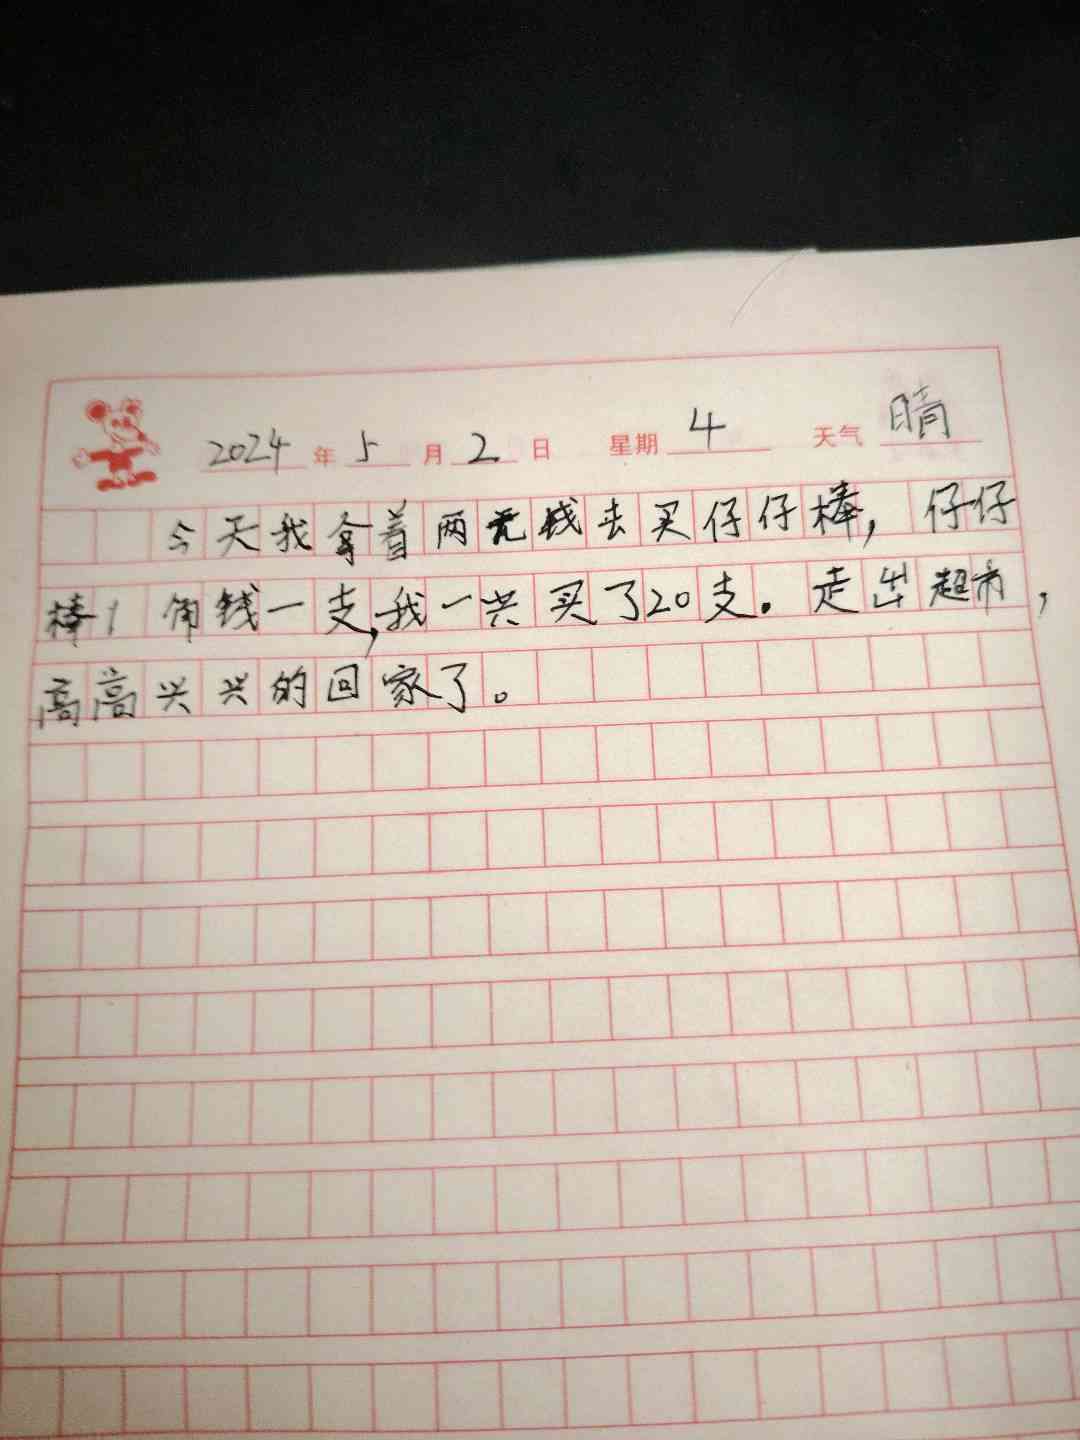 2024年5月2日 星期4 天气晴
今天我拿着两元钱去买仔仔棒,仔仔
棒1角钱一支,我一共买了20支。走出超市,
高高兴兴的回家了。